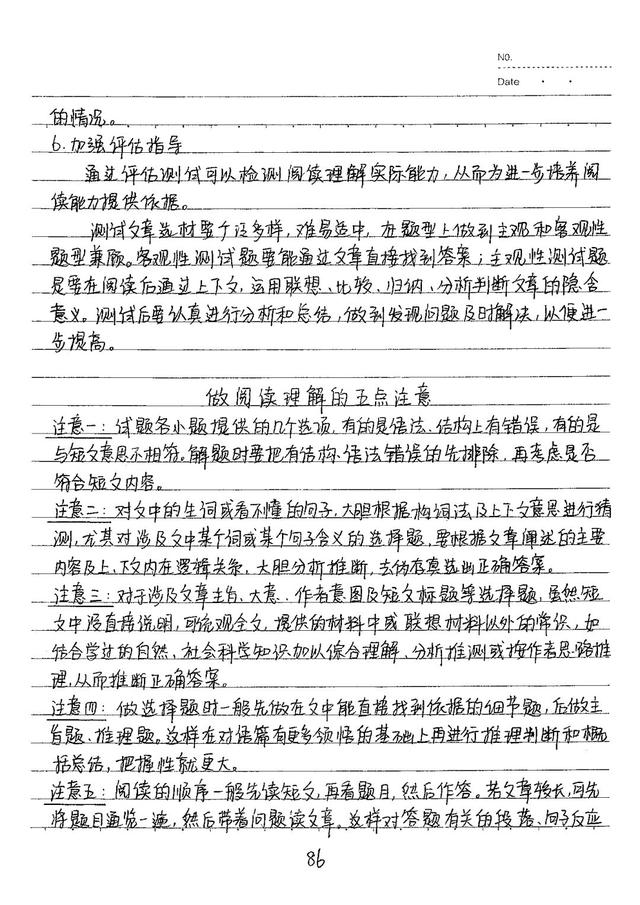 NO.
Date
的情况。
6.加强评估指导
通过评估测试可以检测阅读理解实际能力,从而为进一步培养阅
读能力提供依据。
测试文章选材要广泛多样,难易适中,在题型上做到主观和客观性
题型兼顾。客观性测试题要能通过文章直接找到答案;主观性测试题
是要在阅读后通过上下文,运用联想、比较、归纳、分析判断文章的隐含
意义。测试后要认真进行分析和总结,做到发现问题及时解决,以便进一
步提高。
做阅读理解的五点注意
注意一:试题各小题提供的几个选项,有的是语法、结构上有错误,有的是
与短文意思不相符。解题时要把有结构、语法错误的先排除,再考虑是否
符合短文内容。
注意二:对文中的生词或看不懂的句子,大胆根据构词法及上下文意思进行猜
测,尤其对涉及文中某个词或某个句子含义的选择题,要根据文章阐述的主要
内容及上、下文内在逻辑关系,大胆分析推断,去伪存真选出正确答案。
注意三:对于涉及文章主旨、大意、作者意图及短文标题等选择题,虽然短
文中没直接说明,可统观全文,提供的材料中或联想材料以外的常识,如
结合学过的自然、社会科学知识加以综合理解、分析推测或按作者思路推
理,从而推断正确答案。
注意四:做选择题时一般先做在文中能直接找到依据的细节题,后做主
旨题、推理题。这样在对语篇有更多领悟的基础上再进行推理判断和概
括总结,把握性就更大。
注意五:阅读的顺序一般先读短文,再看题目,然后作答。若文章较长,可先
将题目通览一遍,然后带着问题读文章。这样对答题有关的段落、句子反应
86